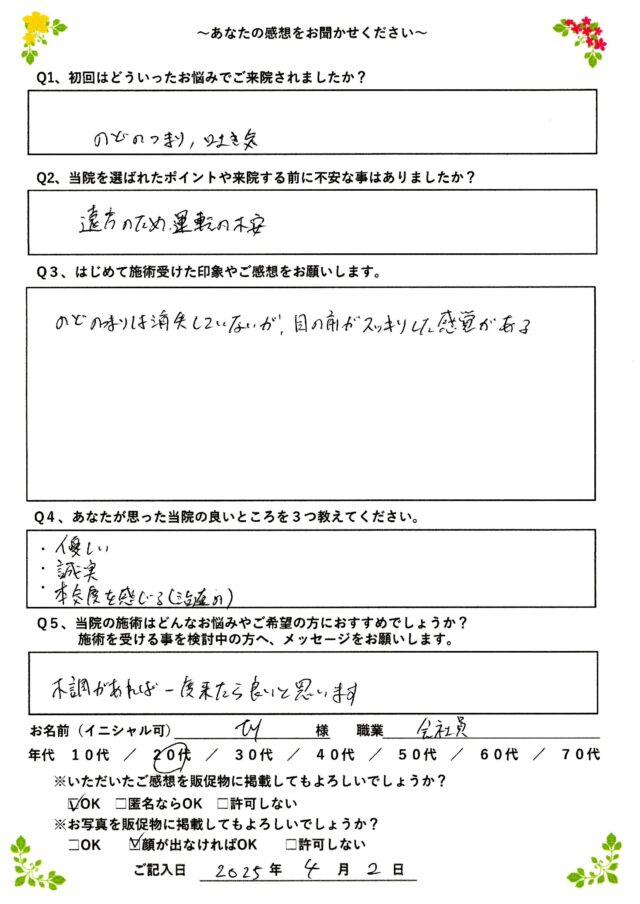 ～あなたの感想をお聞かせください～
Q1、初回はどういったお悩みでご来院されましたか？
のどのつまり，吐き気
Q2、当院を選ばれたポイントや来院する前に不安な事はありましたか？
遠方のため、運転の不安
Q３、はじめて施術受けた印象やご感想をお願いします。
のどのつまりは消失していないが，目の前がスッキリした感覚がある
Q４、あなたが思った当院の良いところを３つ教えてください。
・優しい
・誠実
・本気度を感じる(治療の)
Q５、当院の施術はどんなお悩みやご希望の方におすすめでしょうか？
施術を受ける事を検討中の方へ、メッセージをお願いします。
不調があれば一度来たら良いと思います
お名前（イニシャル可） 様 職業 会社員
年代 １０代 ／ ２０代 ／ ３０代 ／ ４０代 ／ ５０代 ／ ６０代 ／ ７０代
※いただいたご感想を販促物に掲載してもよろしいでしょうか？
☑OK □匿名ならOK □許可しない
※お写真を販促物に掲載してもよろしいでしょうか？
□OK ☑顔が出なければOK □許可しない
ご記入日 2025年 4月 2日